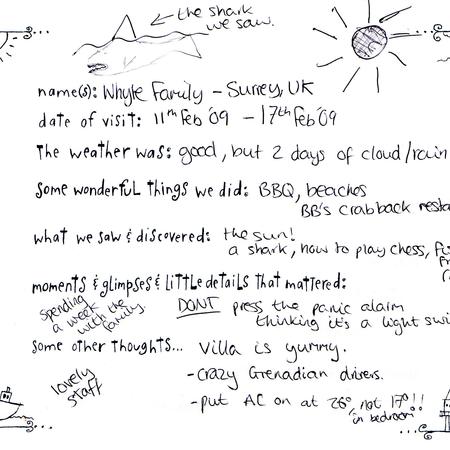 the shark
we saw.
name(s): Whyte Family - Surrey, UK
date of visit: 11th Feb '09 - 17th Feb '09
The weather was: good, but 2 days of cloud/rain
Some wonderful things we did: BBQ, beaches
BB's Crabback
what we saw & discovered: the sun!
a shark, how to play chess,
moments & glimpses & little details that mattered:
Spending
a week
with the
family.
DON'T press the panic alarm
thinking it's a light
Some other thoughts... Villa is yummy.
lovely
staff
- crazy Grenadian drivers.
- put AC on at 26°, not 17°!!
in bedroom